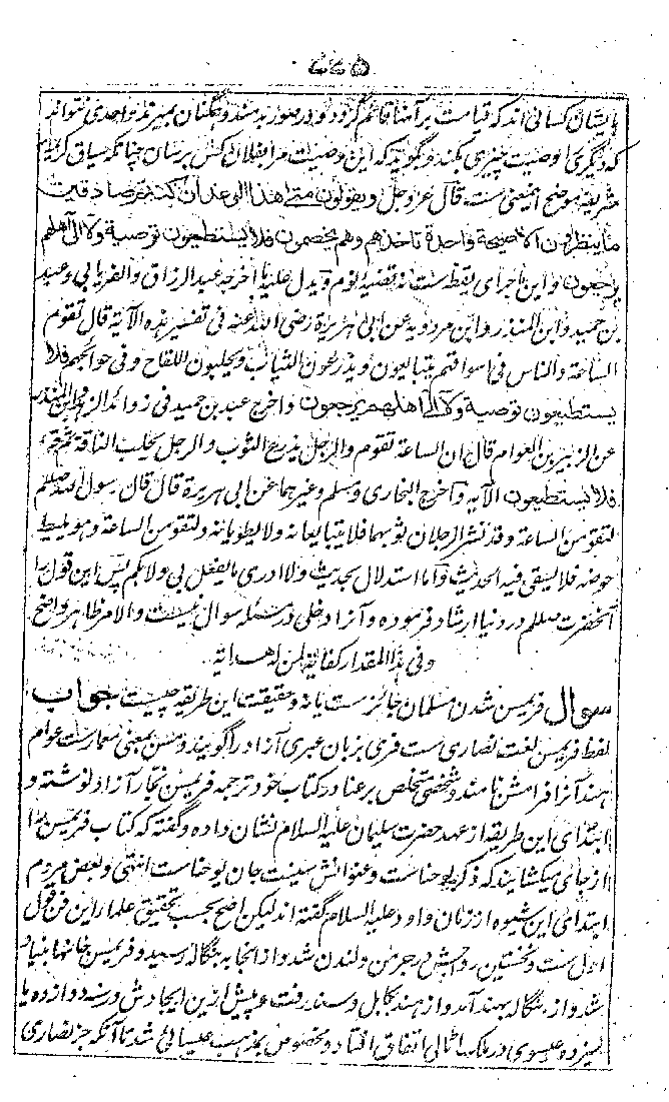 ۵۷۷
ایشان کسانی اند که قیامت بر آنها قائم گردد و در صور بدمند و همگنان بمیرند واحدی نتواند
که دیگری را وصیت چیزی بکند و بگوید که این وصیت مرا بفلان کس برسان چنانکه سیاق کریمه
شریفه موضح این معنی ست قال عز وجل ویقولون متی هذا الوعد ان کنتم صادقین
ما ینظرون الا صیحة واحدة تاخذهم وهم یخصمون فلا یستطیعون توصیة ولا الی اهلهم
یرجعون و این ماجرای یقظت ست نه قضیه نوم ویدل علیه ما اخرجه عبد الرزاق والفریابی وعبد
بن حمید وابن المنذر وابن مردویه عن ابی هریرة رضی الله عنه فی تفسیر هذه الآیة قال تقوم
الساعة والناس فی اسواقهم یتبایعون ویذرعون الثیاب ویحلبون اللقاح وفی حوائجهم فلا
یستطیعون توصیة ولا الی اهلهم یرجعون واخرج عبد بن حمید فی زوائد الزهد وابن المنذر
عن الزبیر بن العوام قال ان الساعة تقوم والرجل یذرع الثوب والرجل یحلب الناقة ثم قرء
فلا یستطیعون الآیه واخرج البخاری ومسلم وغیرهما عن ابی هریرة قال قال رسول الله صلعم
لتقومن الساعة وقد نشر الرجلان ثوبهما فلا یتبایعانه ولا یطویانه ولتقومن الساعة وهو یلیط
حوضه فلا یسقی فیه الحدیث واما استدلال بحدیث ولا ادری ما یفعل بی ولا بکم پس این قول را
آنحضرت صلعم در دنیا ارشاد فرموده و آنرا دخلی در مسئله سوال نیست والامر ظاهر واضح
وفی هذا المقدار کفایة لمن له هدایة
سوال فریمسن شدن مسلمان جائز ست یا نه و حقیقت این طریقه چیست جواب
لفظ فریمسن لغت نصاری ست فری بزبان عبری آزاد را گویند و مسن بمعنی معمار ست عوام
هند آنرا فرامشن نامند و شخصی متخلص برعنا در کتاب خود ترجمه فریمسن نجار آزاد نوشته و
ابتدای این طریقه از عهد حضرت سلیمان علیه السلام نشان داده و گفته که کتاب فریمسن را
از جای میکشایند که ذکر یوحناست و عنوانش سینت جان یوحناست انتهی و بعض مردم
ابتدای این شیوه از زمان داود علیه السلام گفته اند لیکن اصح بحسب تحقیق علمای این فن قول
اول ست و نخستین روجش در جرمن و لندن شد و از انجا به بنگاله رسید و فریمسن خانها بنیاد
شد و از بنگاله بهند آمد و از هند بکابل و سند رفت و پیش ازین ایجادش در سنه دوازده یا
سیزده عیسوی در ملک اٹالی اتفاق افتاد و مخصوص بمذهب عیسائی شد تا آنکه جز نصاری